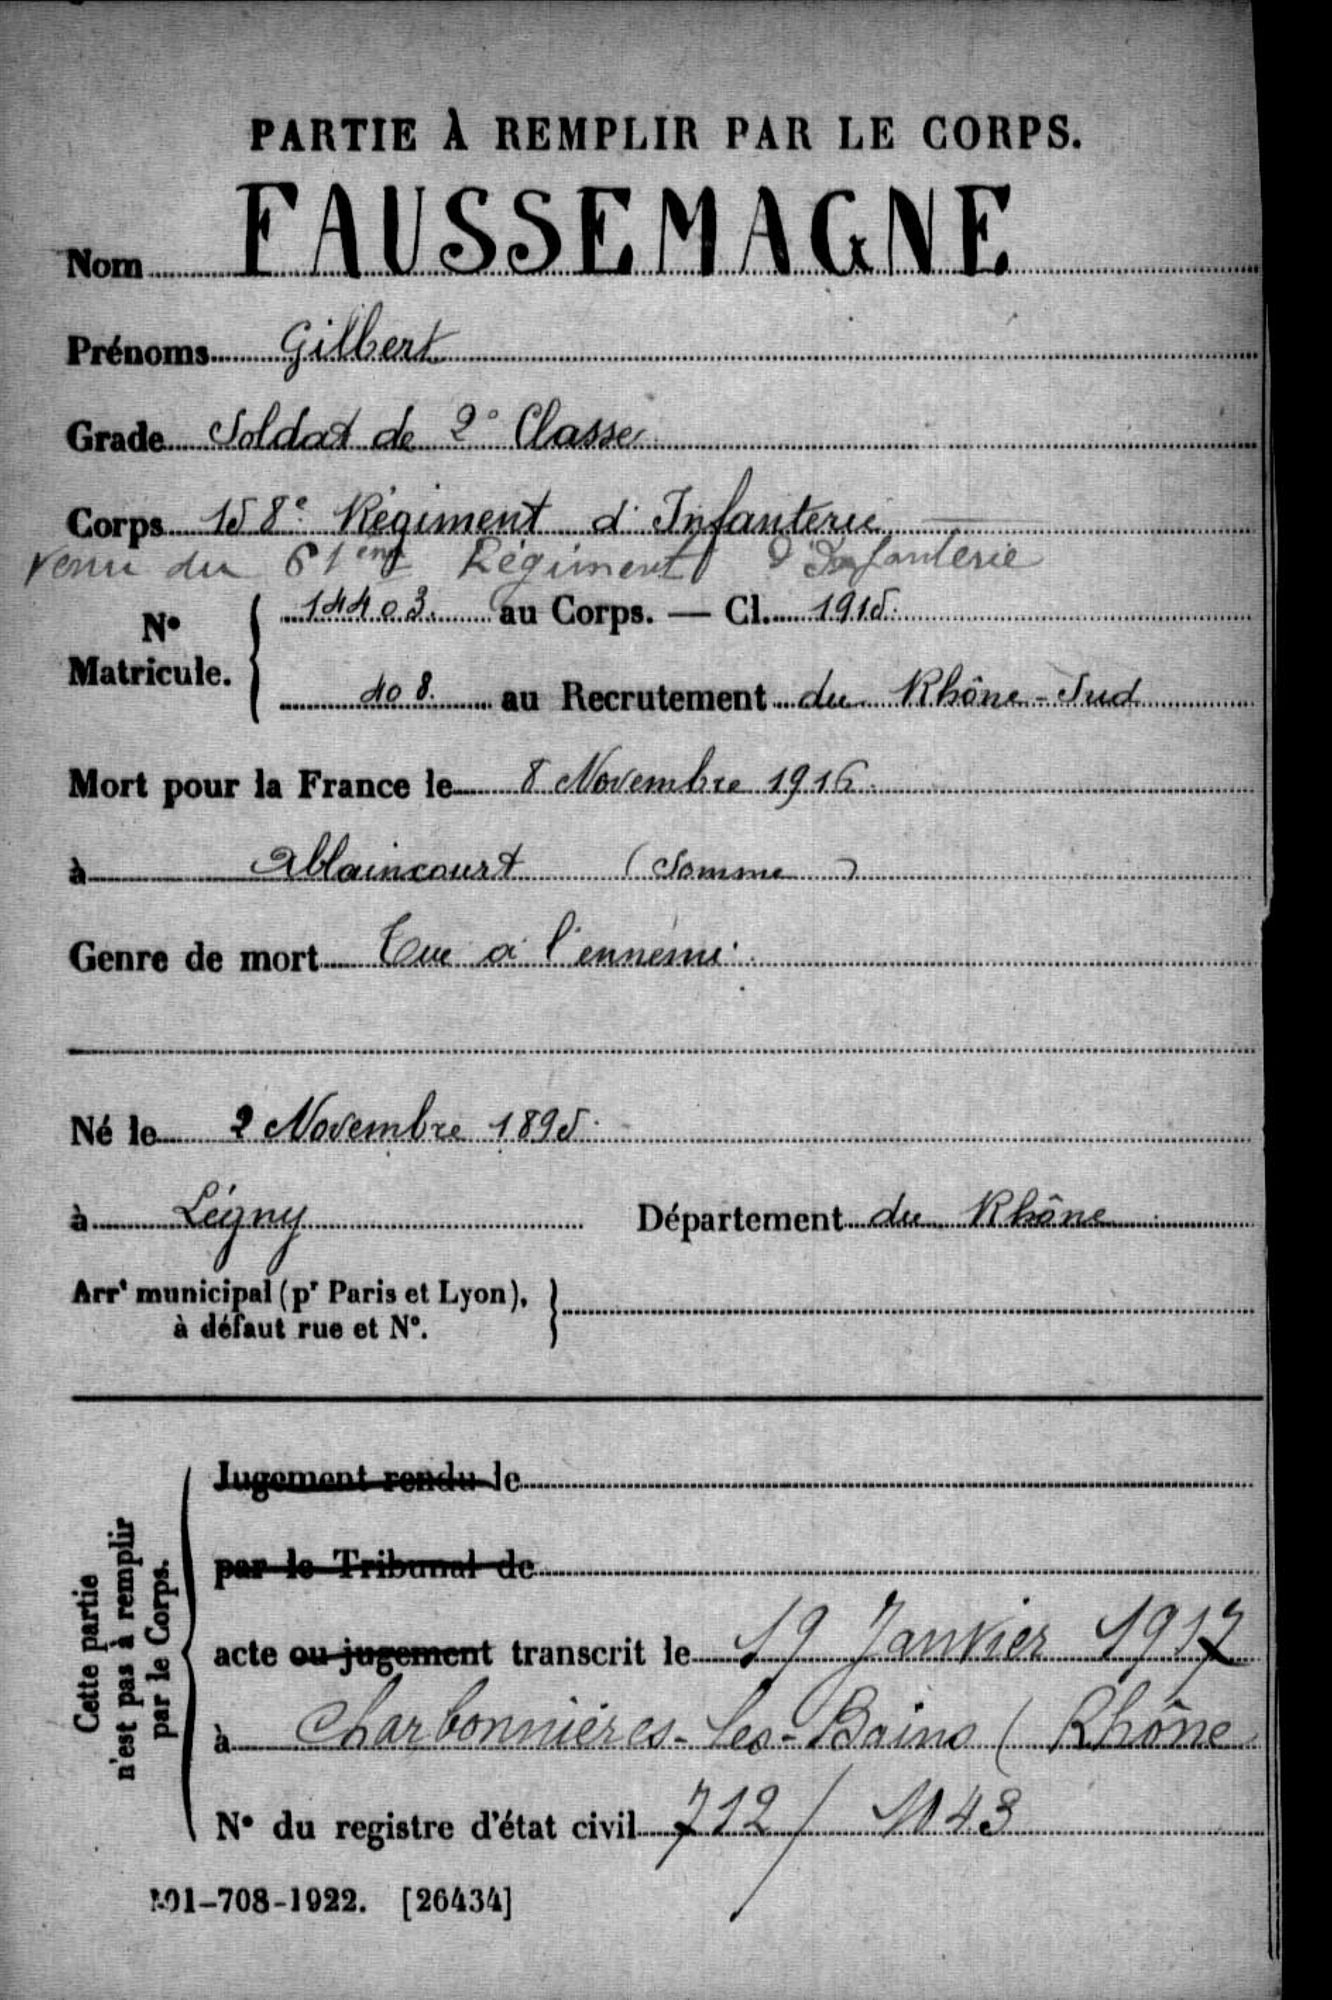 PARTIE À REMPLIR PAR LE CORPS.
Nom FAUSSEMAGNE
Prénoms Gilbert
Grade Soldat de 2e Classe
Corps 158e Régiment d'Infanterie
venu du 61ème Régiment d'Infanterie
N° Matricule. { 14403. au Corps. — Cl. 1915.
408. au Recrutement du Rhône-Sud
Mort pour la France le 8 Novembre 1916.
à Ablaincourt (Somme)
Genre de mort Tué à l'ennemi.
Né le 2 Novembre 1895.
à Légny Département du Rhône
Arrt municipal (pr Paris et Lyon), }
à défaut rue et N°.
Cette partie
n'est pas à remplir
par le Corps.
Jugement rendu le
par le Tribunal de
acte ou jugement transcrit le 19 Janvier 1917
à Charbonnières-les-Bains (Rhône
N° du registre d'état civil 712/
-708-1922. [26434]